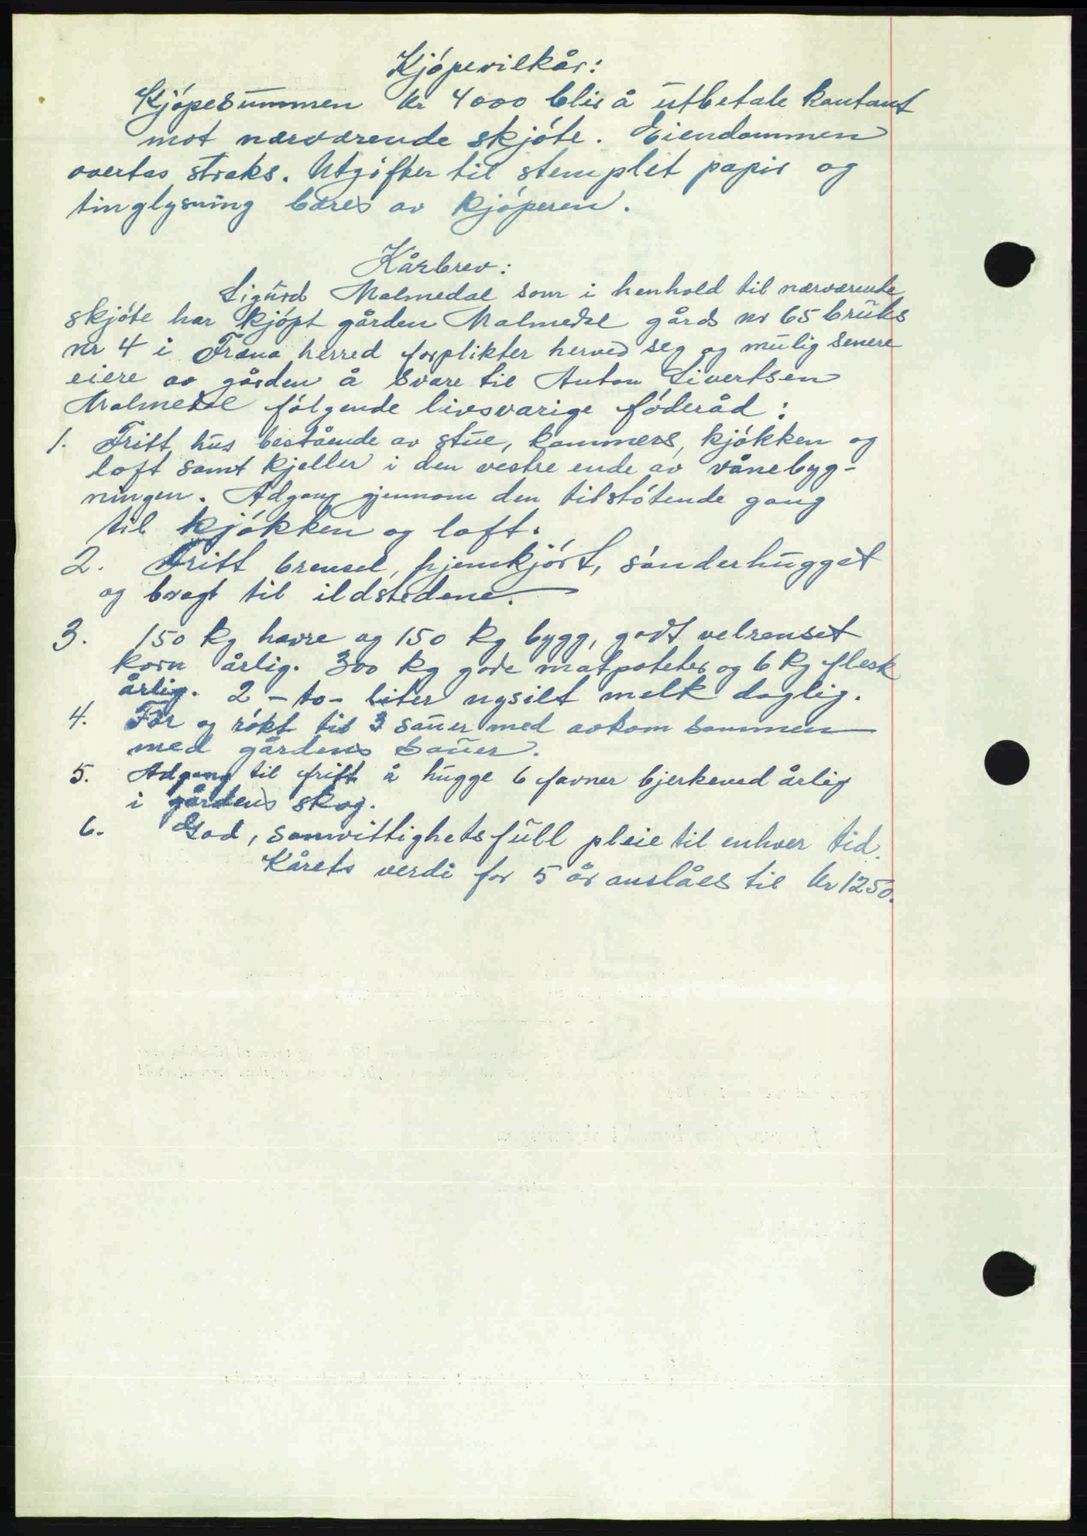 Kjöpevilkår:
Kjöpesummen kr 4000 blir å utbetale kontant
mot nærværende skjöte. Eiendommen
overtas straks. Utgifter til stemplet papir og
tinglysning bæres av kjöperen.
Kårbrev:
Sigurd Malmedal som i henhold til nærværende
skjöte har kjöpt gården Malmedal gårds nr 65 bruks
nr 4 i Fræna herred forplikter herved seg og mulig senere
eiere av gården å svare til Anton Sivertsen
Malmedal fölgende livsvarige föderåd:
1. Fritt hus bestående av stue, kammers, kjökken og
loft samt kjeller i den vestre ende av vånebyg-
ningen. Adgang gjennom den tilstötende gang
til kjökken og loft.
2. Fritt brensel, hjemkjört, sönderhugget
og bragt til ildstedene.
3. 150 kg havre og 150 kg bygg, godt velrenset
korn årlig. 300 kg gode matpoteter og 6 kg flesk
årlig. 2 - to - liter nysilt melk daglig.
4. Fôr og rökt til 3 sauer med avkom sammen
med gårdens sauer.
5. Adgang til fritt å hugge 6 favner bjerkeved årlig
i gårdens skog.
6. God, samvittighetsfull pleie til enhver tid.
Kårets verdi for 5 år anslåes til kr 1250.